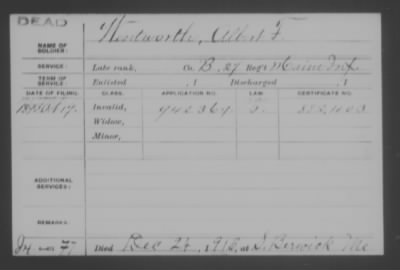 DEAD
NAME OF SOLDIER: Wentworth, Albert F.
SERVICE: Late rank, Co. B, 27 Reg't Maine Inf.
TERM OF SERVICE: Enlisted , 1 Discharged , 1
DATE OF FILING. CLASS. APPLICATION NO. LAW. CERTIFICATE NO.
Invalid,
Widow,
Minor,
ADDITIONAL SERVICES:
REMARKS:
Died Dec 26, 1916, at S. Berwick Me